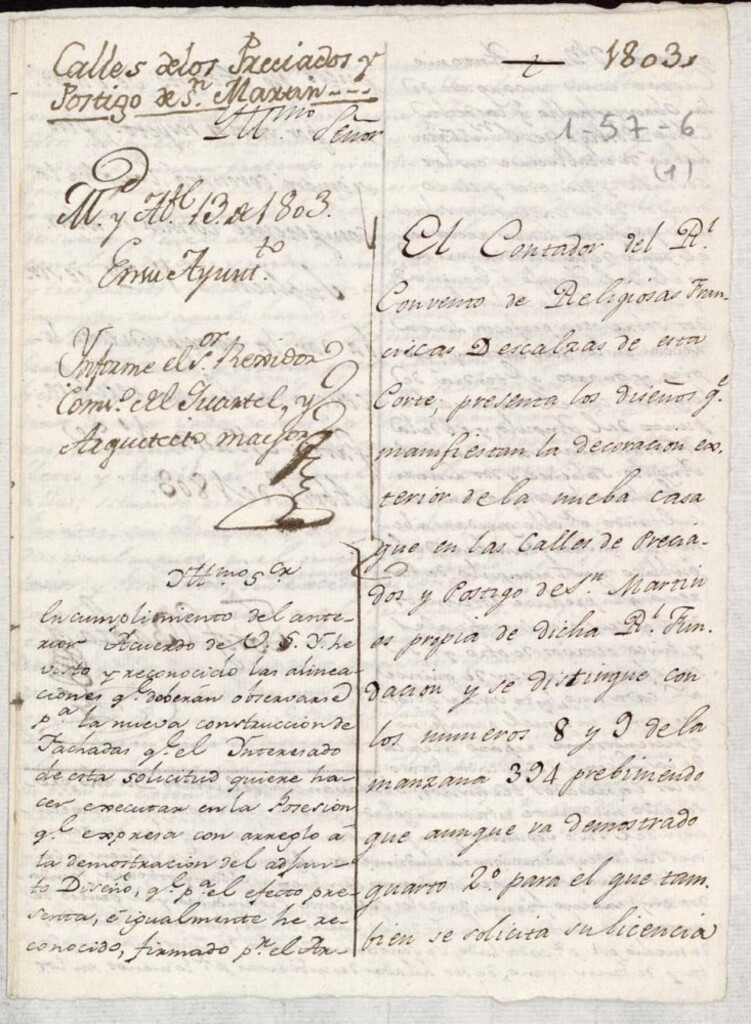 Calles de los Preciados y
Postigo de Sn. Martin----
1803,,
Yllmo Señor
1-57-6
(1)
Md. y Abl. 13 de 1803.
En su Ayuntto.
Ynforme el Sor. Regidor
Comio. del Quartel, y
Arquetecto mayor
Yllmo Sor
En cumplimiento del ante-
rior Acuerdo de V. S. Y. he
visto y reconocido las alinea-
ciones qe. deberán observarse
pa. la nueva construccion de
Fachadas qe. el Ynteresado
de esta solicitud quiere ha-
cer executar en la Posesion
qe. expresa con arreglo à
la demostracion del adjun-
to Diseño, qe. pa. el efecto pre-
senta, è igualmente he re-
conocido, firmado pr. el Ar-
El Contador del Rl.
Convento de Religiosas Fran-
ciscas Descalzas de esta
Corte, presenta los diseños qe.
manifiestan la decoracion ex-
terior de la nueba casa
que en las Calles de Precia-
dos y Postigo de Sn. Martin
es propia de dicha Rl. Fun-
dacion y se distingue con
los numeros 8 y 9 de la
manzana 394 prebiniendo
que aunque va demostrado
quarto 2º para el que tam-
bien se solicita su licencia